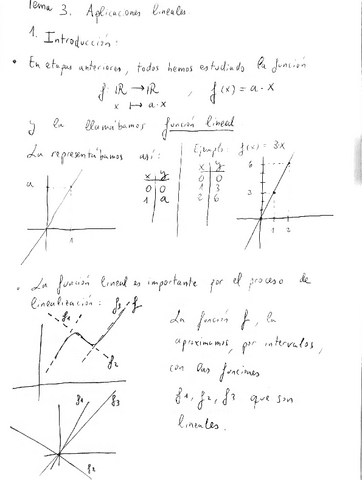 Tema 3. Aplicaciones lineales.
1. Introducción:
• En etapas anteriores, todos hemos estudiado la función
f: ℝ → ℝ , f(x) = a·x
x ↦ a·x
y la llamábamos función lineal
La representábamos así:
a
1
x y
0 0
1 a
Ejemplo: f(x) = 3x
x y
0 0
1 3
2 6
6
3
1 2
• La función lineal es importante por el proceso de
linealización:
f1 f3 f
f2
f1 f3
f2
La función f, la
aproximamos, por intervalos,
con las funciones
f1, f2, f3 que son
lineales.